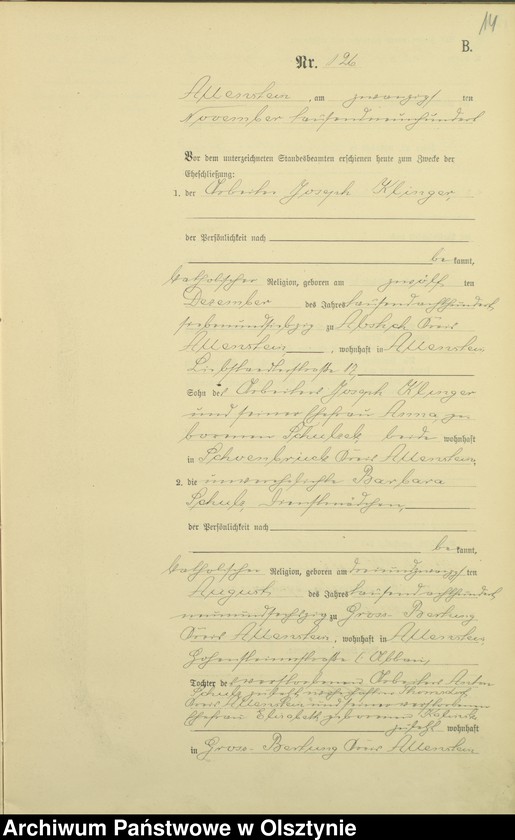 14
B.
Nr. 126
Allenstein, am zwanzigsten
November tausendneunhundert
Vor dem unterzeichneten Standesbeamten erschienen heute zum Zwecke der
Eheschließung:
1. der Arbeiter Joseph Klinger,
der Persönlichkeit nach
bekannt,
katholischer Religion, geboren am zwölften
Dezember des Jahres tausendachthundert
siebenundsiebzig zu Kreis
Allenstein, wohnhaft in Allenstein
Liebstaedterstraße 12,
Sohn des Arbeiters Joseph Klinger
und seiner Ehefrau Anna ge
borenen beide wohnhaft
in Schoenbrück Kreis Allenstein.
2. die unverehelichte Barbara
Schulz, Dienstmädchen,
der Persönlichkeit nach
bekannt,
katholischer Religion, geboren am dreiundzwanzigsten
August des Jahres tausendachthundert
neunundsechzig zu Gross Bertung
Kreis Allenstein, wohnhaft in Allenstein,
Hohensteinerstraße (Abbau),
Tochter des verstorbenen Arbeiters Anton
Schulz zuletzt wohnhaft in
Kreis Allenstein und seiner verstorbenen
Ehefrau Elisabeth geborenen
zuletzt wohnhaft
in Gross Bertung Kreis Allenstein
Archiwum Państwowe w Olsztynie